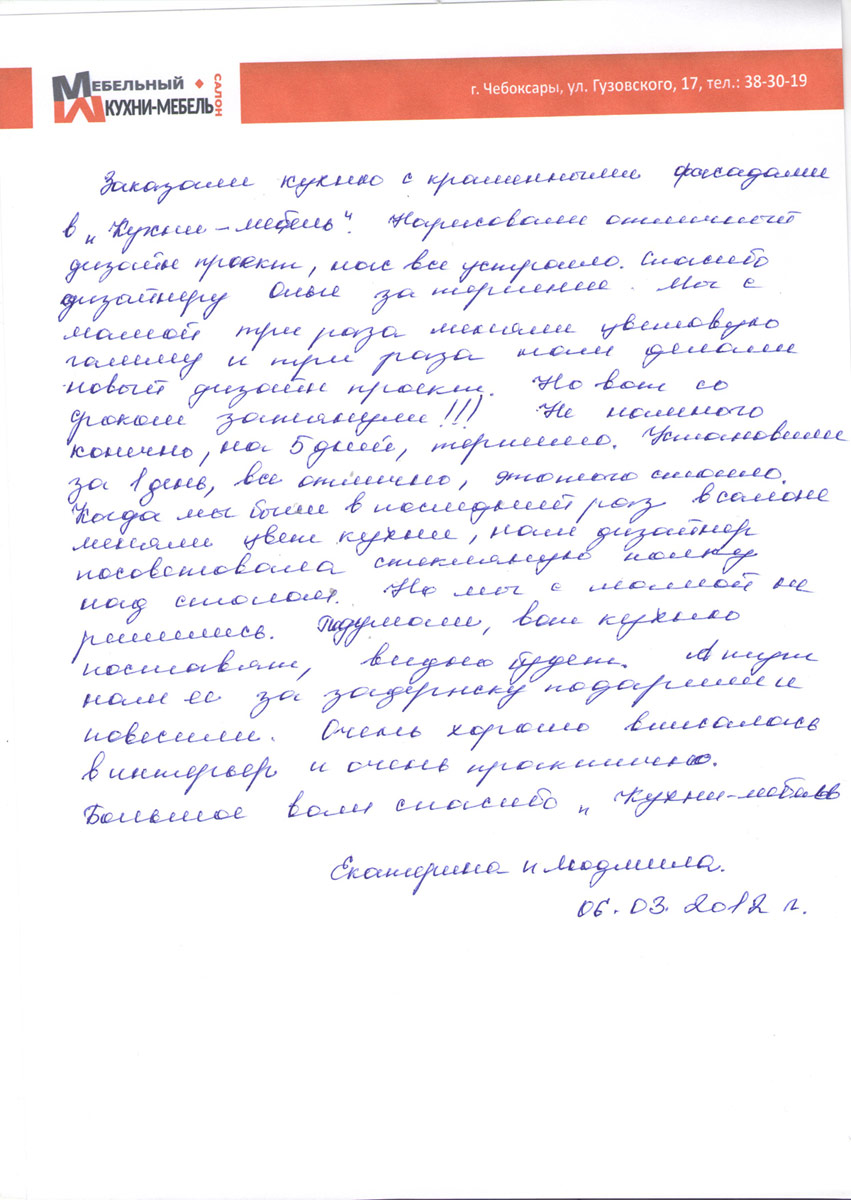 МЕБЕЛЬНЫЙ САЛОН
КУХНИ-МЕБЕЛЬ
г. Чебоксары, ул. Гузовского, 17, тел.: 38-30-19
Заказали кухню с крашенными фасадами
в „Кухни-мебель". Нарисовали отличный
дизайн проект, нас все устроило. Спасибо
дизайнеру Ольге за терпение. Мы с
мамой три раза меняли цветовую
гамму и три раза нам делали
новый дизайн проект. Но вот со
сроком затянули!!! Не намного
конечно, на 5 дней, терпимо. Установили
за 1 день, все отлично, этого стоило.
Когда мы были в последний раз в салоне
меняли цвет кухни, нам дизайнер
посоветовала стеклянную полку
над столом. Но мы с мамой не
решились. Подумали, вот кухню
поставят, видно будет. А тут
нам ее за задержку подарили и
повесили. Очень хорошо вписалась
в интерьер и очень практично.
Большое вам спасибо „Кухни-мебель
Екатерина и Людмила.
06.03.2012 г.